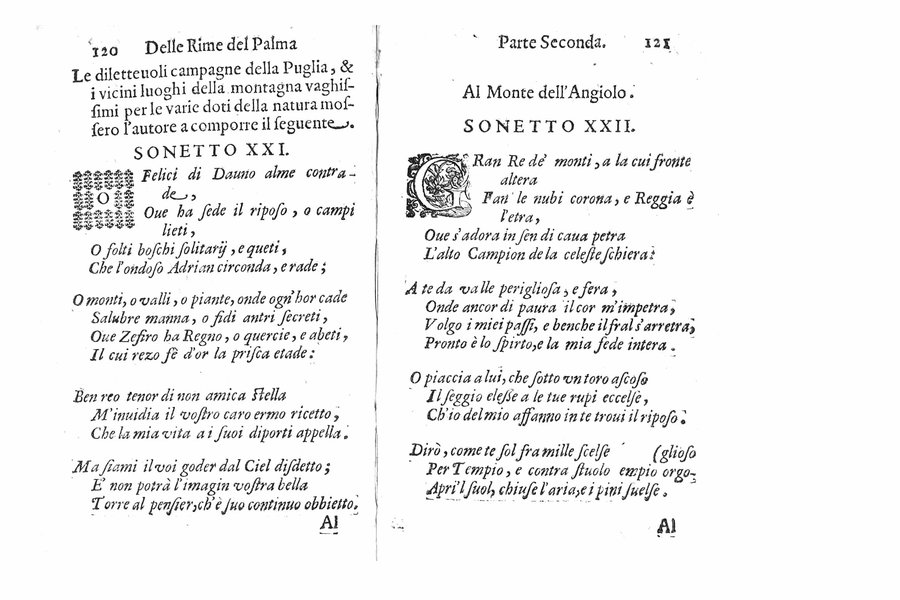 120 Delle Rime del Palma
Le diletteuoli campagne della Puglia, &
i vicini luoghi della montagna vaghiſ-
ſimi per le varie doti della natura moſ-
ſero l'autore a comporre il ſeguente.
SONETTO XXI.
O Felici di Dauno alme contra-
de,
Oue ha ſede il ripoſo, o campi
lieti,
O folti boſchi ſolitarij, e queti,
Che l'ondoſo Adrian circonda, e rade;
O monti, o valli, o piante, onde ogn'hor cade
Salubre manna, o fidi antri ſecreti,
Oue Zefiro ha Regno, o quercie, e abeti,
Il cui rezo fè d'or la priſca etade:
Ben reo tenor di non amica ſtella
M'inuidia il voſtro caro ermo ricetto,
Che la mia vita a i ſuoi diporti appella.
Ma ſiami il voi goder dal Ciel diſdetto;
E' non potrà l'imagin voſtra bella
Torre al penſier, ch'è ſuo continuo obbietto.
Al
Parte Seconda. 121
Al Monte dell'Angiolo.
SONETTO XXII.
GRan Re de' monti, a la cui fronte
altera
Fan le nubi corona, e Reggia è
l'etra,
Oue s'adora in ſen di caua petra
L'alto Campion de la celeſte ſchiera:
A te da valle periglioſa, e fera,
Onde ancor di paura il cor m'impetra,
Volgo i miei paſſi, e benche il fral s'arretra,
Pronto è lo ſpirto, e la mia fede intera.
O piaccia a lui, che ſotto vn toro aſcoſo
Il ſeggio eleſſe a le tue rupi eccelſe,
Ch'io del mio affanno in te troui il ripoſo.
Dirò, come te ſol fra mille ſcelſe (glioſo
Per Tempio, e contra ſtuolo empio orgo-
Aprì'l ſuol, chiuſe l'aria, e i pini ſuelſe.
Al